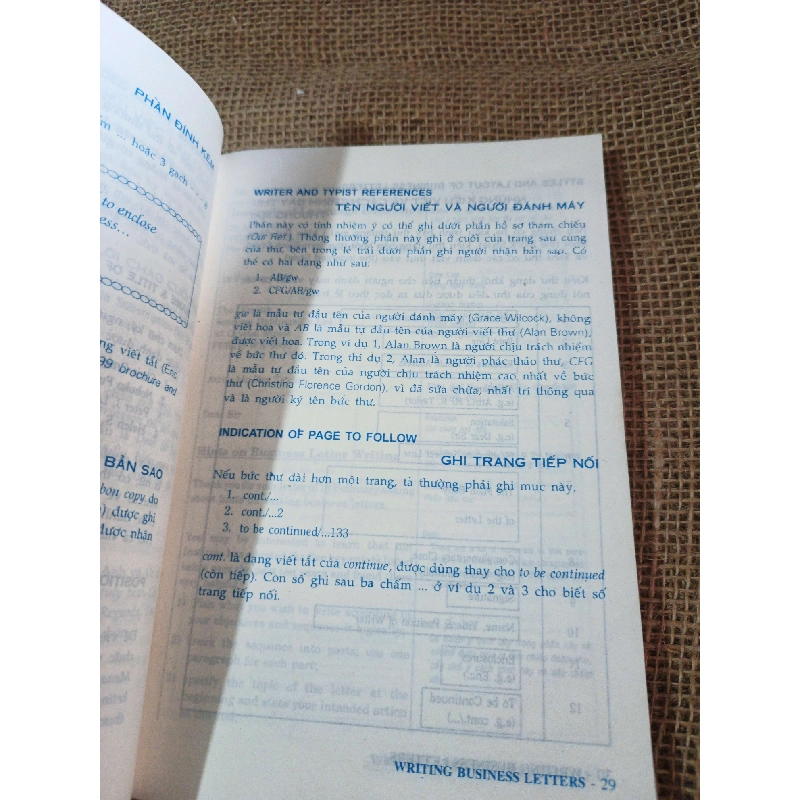 PHẦN ĐÍNH KÈM
... hoặc 3 gạch
to enclose
ess...
ng viết tắt (Enc
99 brochure and
BẢN SAO
bon copy do
) được ghi
được nhân
WRITER AND TYPIST REFERENCES
TÊN NGƯỜI VIẾT VÀ NGƯỜI ĐÁNH MÁY
Phần này có tính nhiệm ý có thể ghi dưới phần hồ sơ tham chiếu
(Our Ref.). Thông thường phần này ghi ở cuối của trang sau cùng
của thư, bên trong lề trái dưới phần ghi người nhận bản sao. Có
thể có hai dạng như sau:
1. AB/gw
2. CFG/AB/gw
gw là mẫu tự đầu tên của người đánh máy (Grace Wilcock), không
viết hoa và AB là mẫu tự đầu tên của người viết thư (Alan Brown),
được viết hoa. Trong ví dụ 1, Alan Brown là người chịu trách nhiệm
về bức thư đó. Trong thí dụ 2, Alan là người phác thảo thư, CFG
là mẫu tự đầu tên của người chịu trách nhiệm cao nhất về bức
thư (Christina Florence Gordon), vì đã sửa chữa, nhất trí thông qua
và là người ký tên bức thư.
INDICATION OF PAGE TO FOLLOW
GHI TRANG TIẾP NỐI
Nếu bức thư dài hơn một trang, ta thường phải ghi mục này.
1. cont./...
2. cont./...2
3. to be continued/...133
cont. là dạng viết tắt của continue, được dùng thay cho to be continued
(còn tiếp). Con số ghi sau ba chấm ... ở ví dụ 2 và 3 cho biết số
trang tiếp nối.
WRITING BUSINESS LETTERS - 29